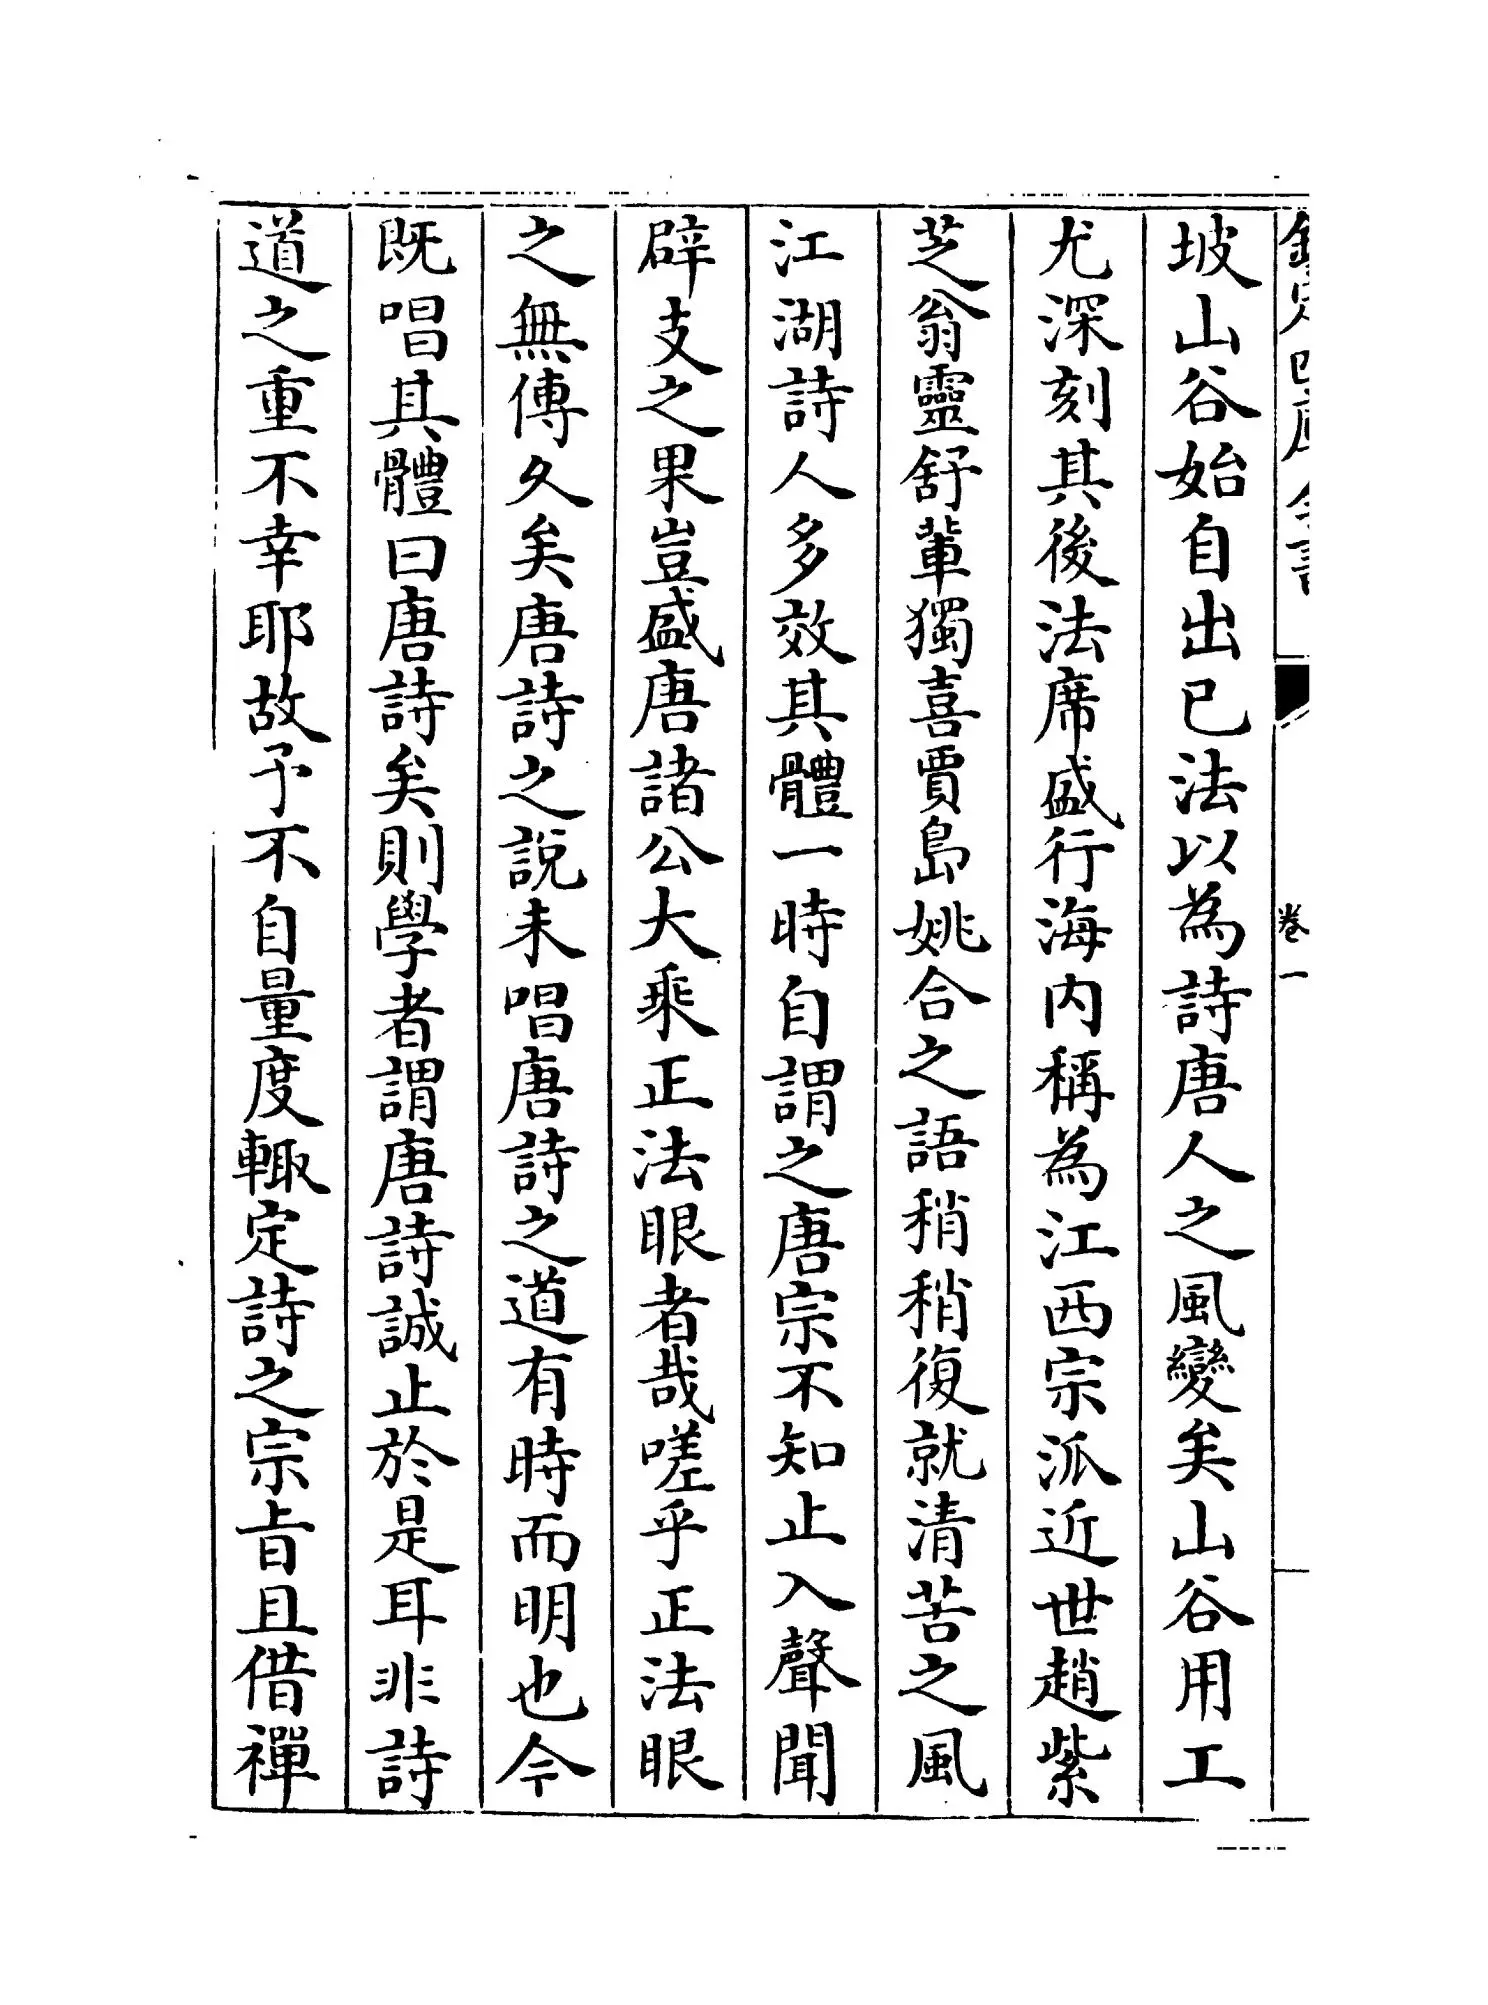 欽定四庫全書
卷一
坡山谷始自出已法以為詩唐人之風變矣山谷用工
尤深刻其後法席盛行海内稱為江西宗派近世趙紫
芝翁靈舒輩獨喜賈島姚合之語稍稍復就清苦之風
江湖詩人多效其體一時自謂之唐宗不知止入聲聞
辟支之果豈盛唐諸公大乘正法眼者哉嗟乎正法眼
之無傳久矣唐詩之說未唱唐詩之道有時而明也今
既唱其體曰唐詩矣則學者謂唐詩誠止於是耳非詩
道之重不幸耶故予不自量度輙定詩之宗㫖且借禪